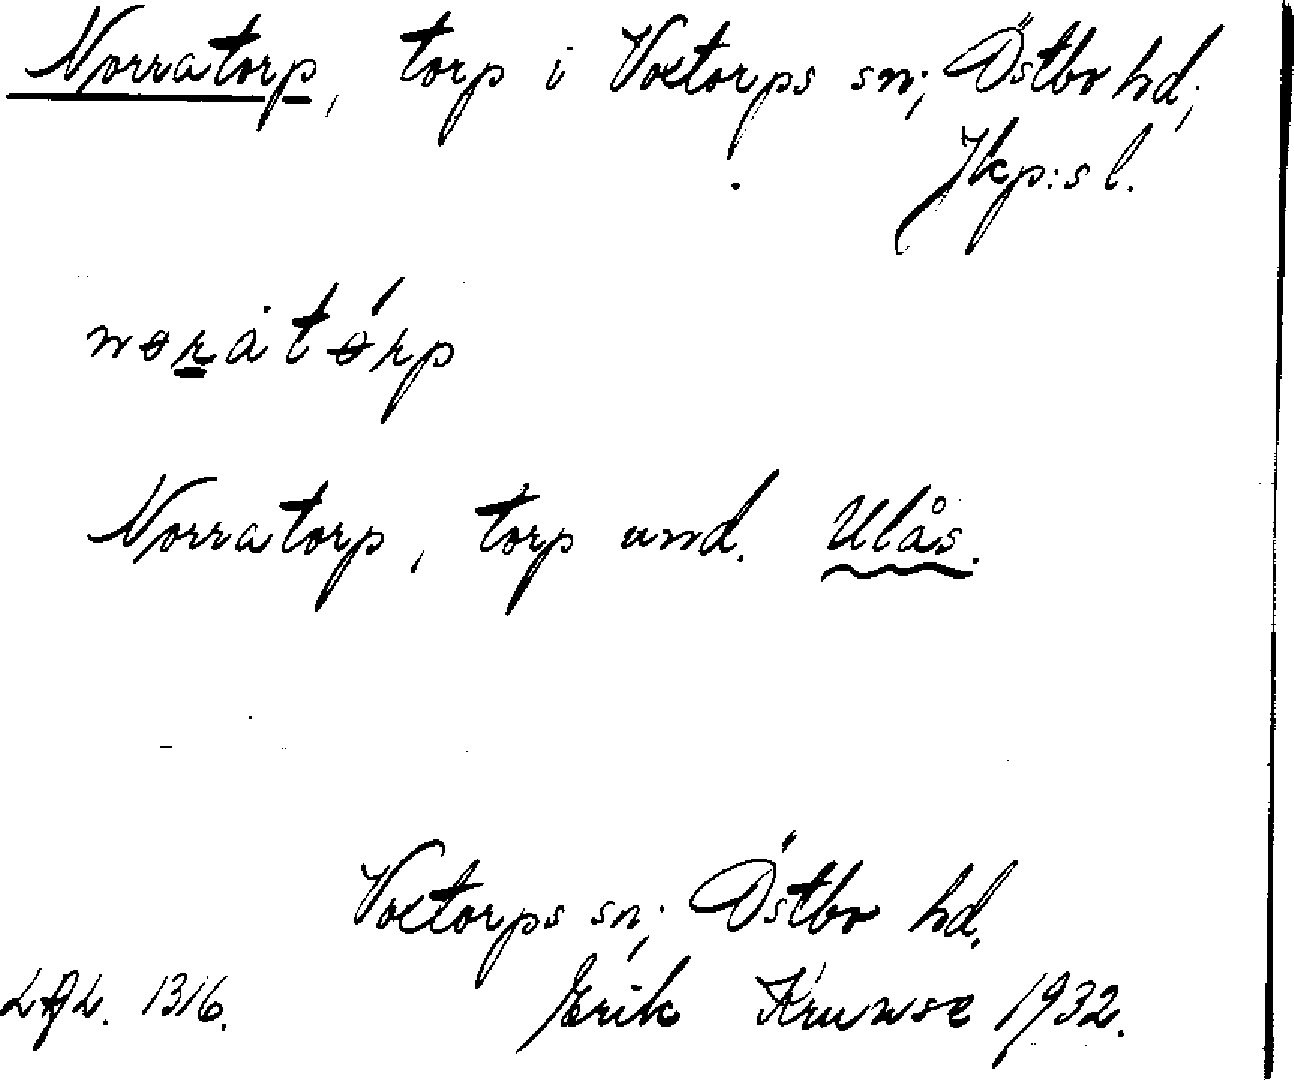 Norratorp, torp i Voxtorps sn; Östbo hd;
Jkp:s l.
Norratorp, torp und. Ulås.
Voxtorps sn; Östbo hd.
1316. Erik Kruuse 1932.